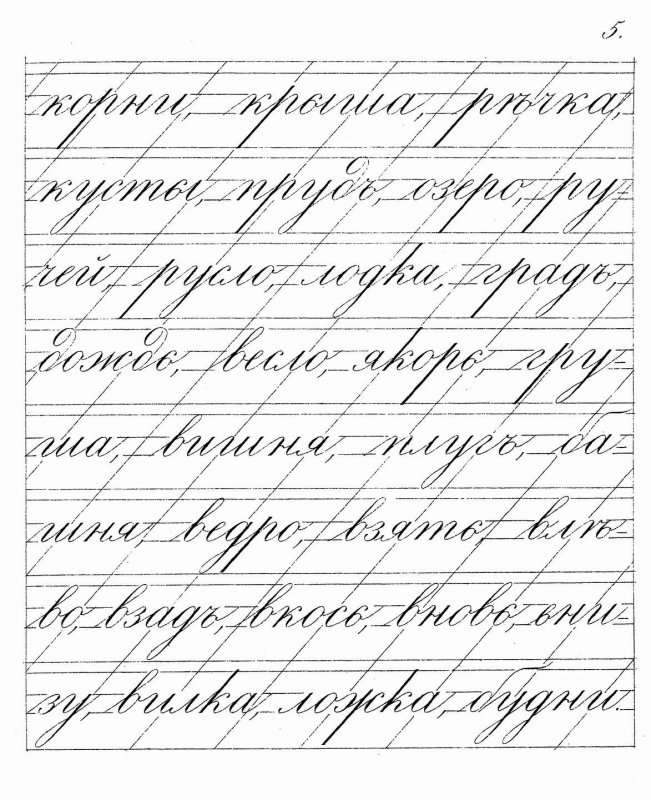 5.
корни, крыша, рѣчка,
кусты, прудъ, озеро, ру-
чей, русло, лодка, градъ,
дождь, весло, якорь, гру-
ша, вишня, плугъ, ба-
шня, ведро, взять, влѣ-
во, взадъ, вкось, вновь, вни-
зу, вилка, ложка, будни.